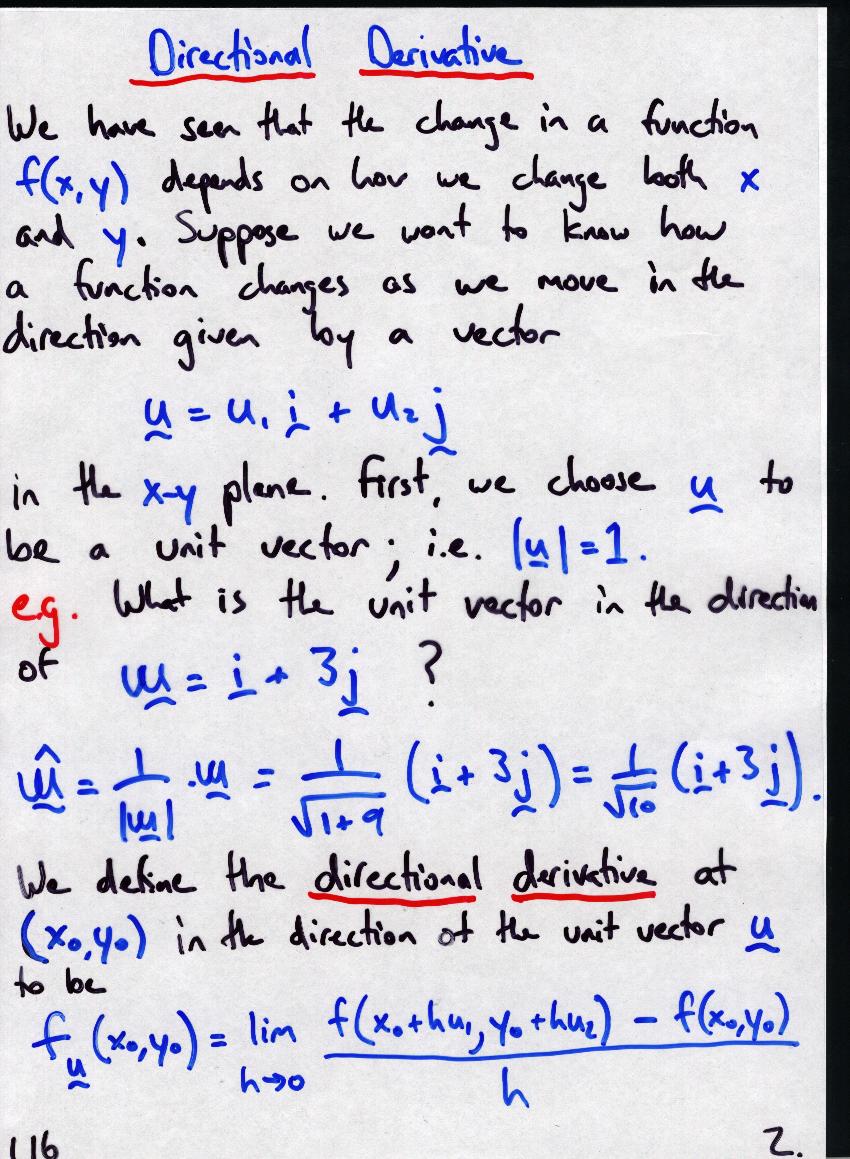 Directional Derivative
We have seen that the change in a function
f(x,y) depends on how we change both x
and y. Suppose we want to know how
a function changes as we move in the
direction given by a vector
u = u₁ i + u₂ j
in the x-y plane. First, we choose u to
be a unit vector; i.e. |u| = 1.
e.g. What is the unit vector in the direction
of w = i + 3j ?
ŵ = 1/|w| . w = 1/√(1+9) (i + 3j) = 1/√10 (i + 3j).
We define the directional derivative at
(x₀,y₀) in the direction of the unit vector u
to be
f_u (x₀,y₀) = lim h→0 (f(x₀+hu₁, y₀+hu₂) − f(x₀,y₀)) / h
116 2.